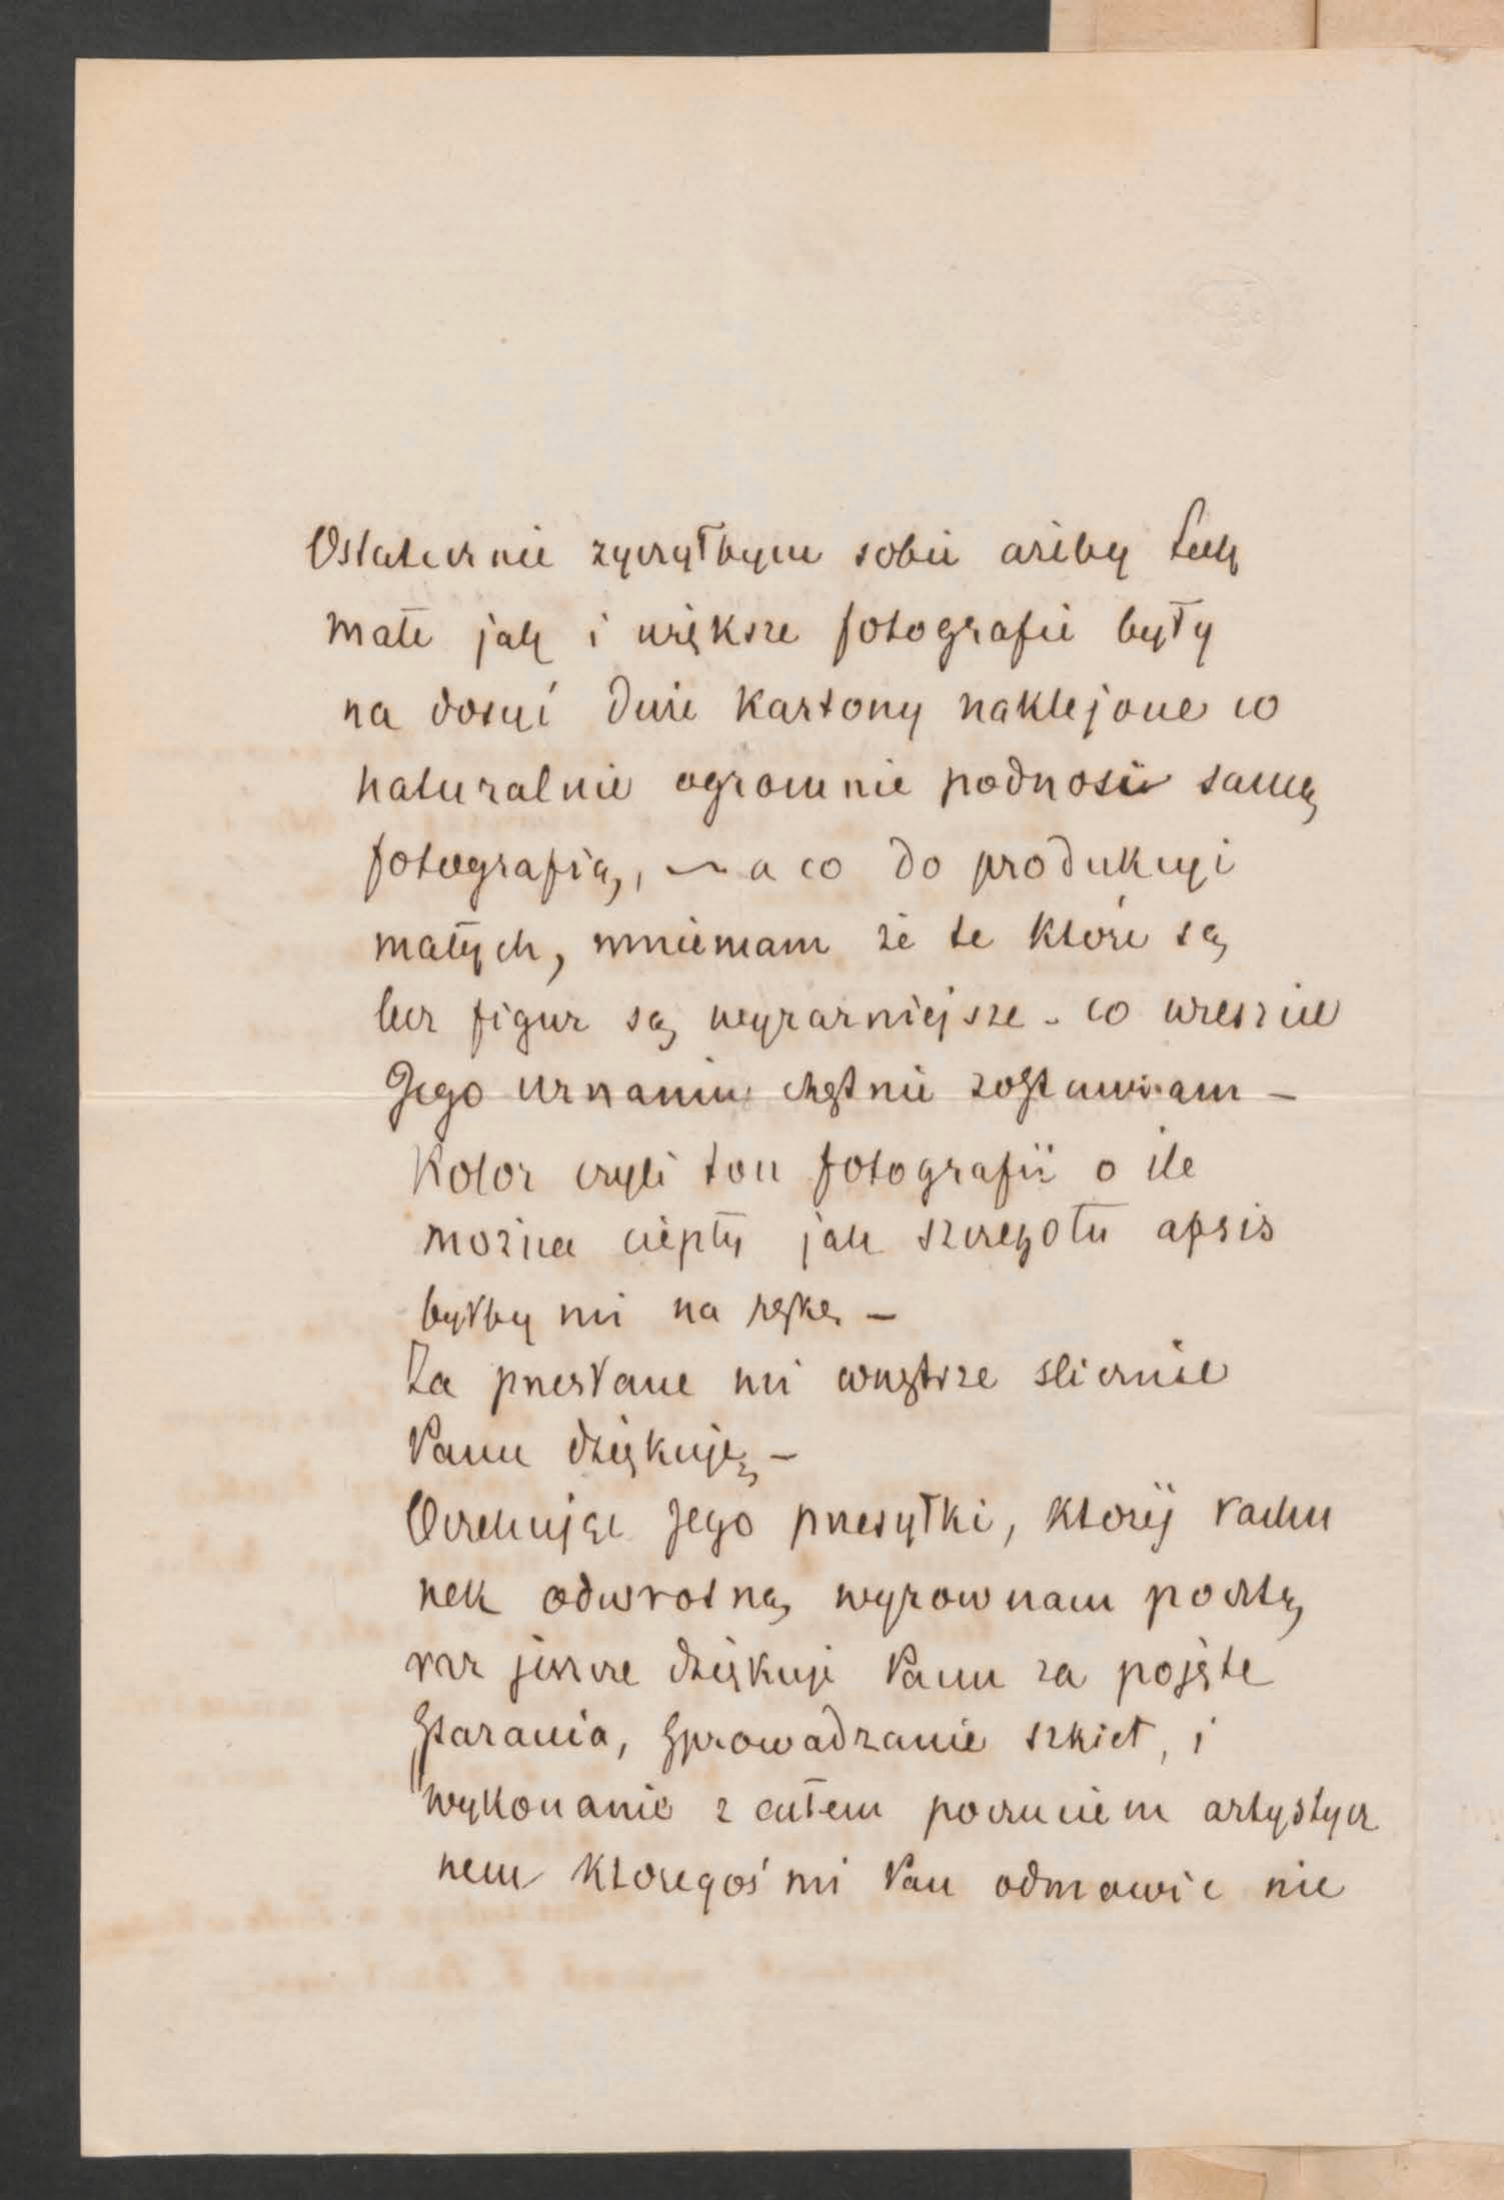 Ostatecznie zyczyłbym sobie ażeby tak
małe jak i większe fotografie były
na dosyć duże kartony naklejone co
naturalnie ogromnie podnosi samą
fotografią, — a co do produkcyi
małych, mniemam że te które są
bez figur są wyrazniejsze - co wreszcie
Jego uznaniu chętnie zostawiam —
Kolor czyli ton fotografii o ile
można ciepły jak szczegółu apsis
byłby mi na rękę —
Za przesłane mi wnętrze slicznie
Panu dziękuję, —
Oczekując Jego przesyłki, któréj rachu
nek odwrotną wyrownam pocztą
raz jeszcze dziękuję Panu za pojęte
starania, sprowadzanie szkieł, i
wykonanie z całem poczuciem artystycz
nem ktoregoś mi Pan odmowic nie